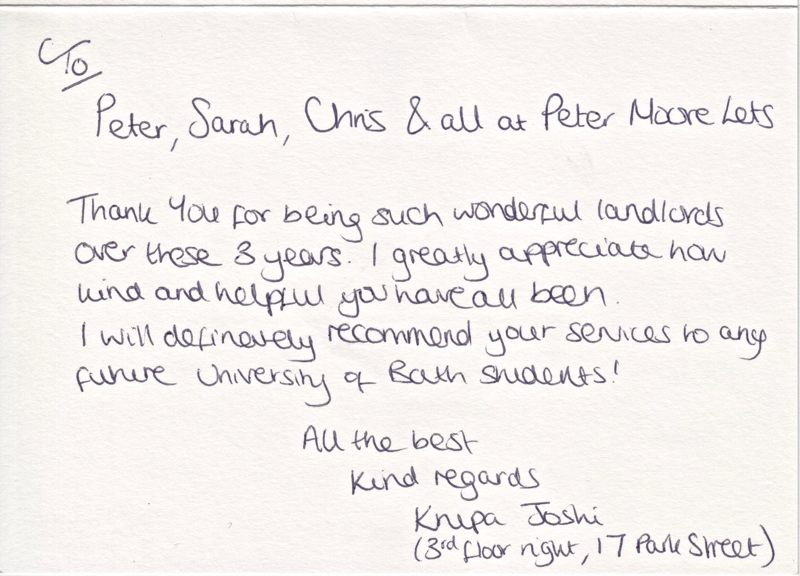 To
Peter, Sarah, Chris & all at Peter Moore Lets
Thank You for being such wonderful landlords
over these 3 years. I greatly appreciate how
kind and helpful you have all been.
I will definately recommend your services to any
future University of Bath students!
All the best
Kind regards
Krupa Joshi
(3rd floor right, 17 Park Street)